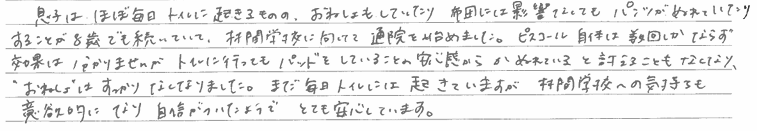 息子は ほぼ毎日 トイレに起きるものの、おねしょもしていたり 布団には影響なくても パンツがぬれていたり
することが8歳でも続いていて、林間学校に向けて 通院を始めました。ピスコール自体は 数回しかならず
効果は 分かりませんが トイレに行っても パッドをしていることの安心感から か ぬれていると 訴えることもなくなり、
"おねしょ"は すっかり なくなりました。まだ毎日トイレには 起きていますが 林間学校への気持ちも
意欲的に なり 自信がついたようで とても安心しています。